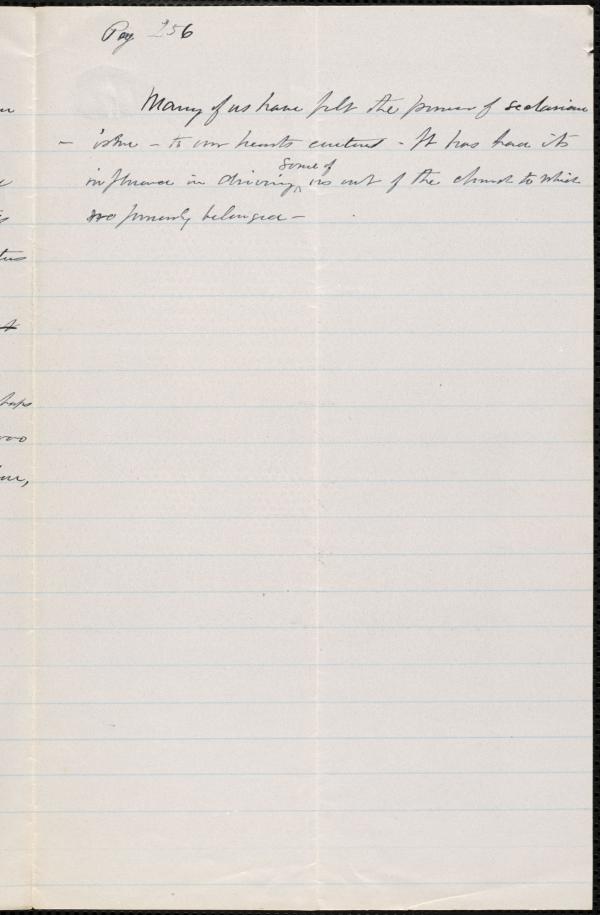 Pag 256
Many of us have felt the power of sectarian
- isme - to our hearts content - It has had its
influence in driving some of us out of the church to which
we formerly belonged -